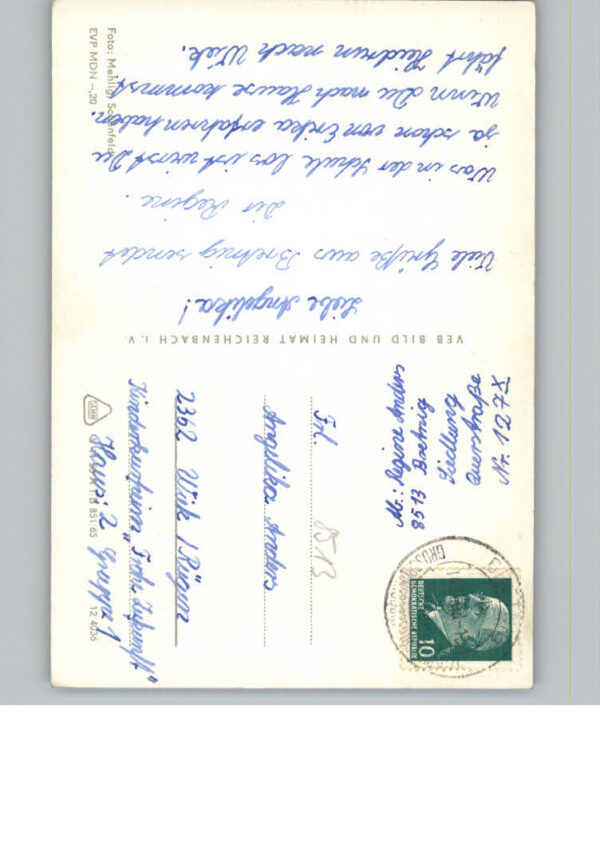 Liebe Angelika!
Viele Grüße aus Bretnig sendet
Dir Regine.
Was in der Schule los ist wirst Du
ja schon von Erika erfahren haben.
Wenn Du nach Hause kommst
fährt Heidrun nach Wiek.
Foto: Mehlig, Schönfeld
EVP MDN -,20
VEB BILD UND HEIMAT REICHENBACH i. V.
Ab.: Regine
8513 Bretnig
Siedlung
Querstraße
Nr. 127X
DEUTSCHE
DEMOKRATISCHE REPUBLIK
10
8513
Frl.
Angelika
2362 Wiek / Rügen
Kinderkurheim "Frohe Zukunft"
Haus: 2 Gruppe 1
851 65
12 4036